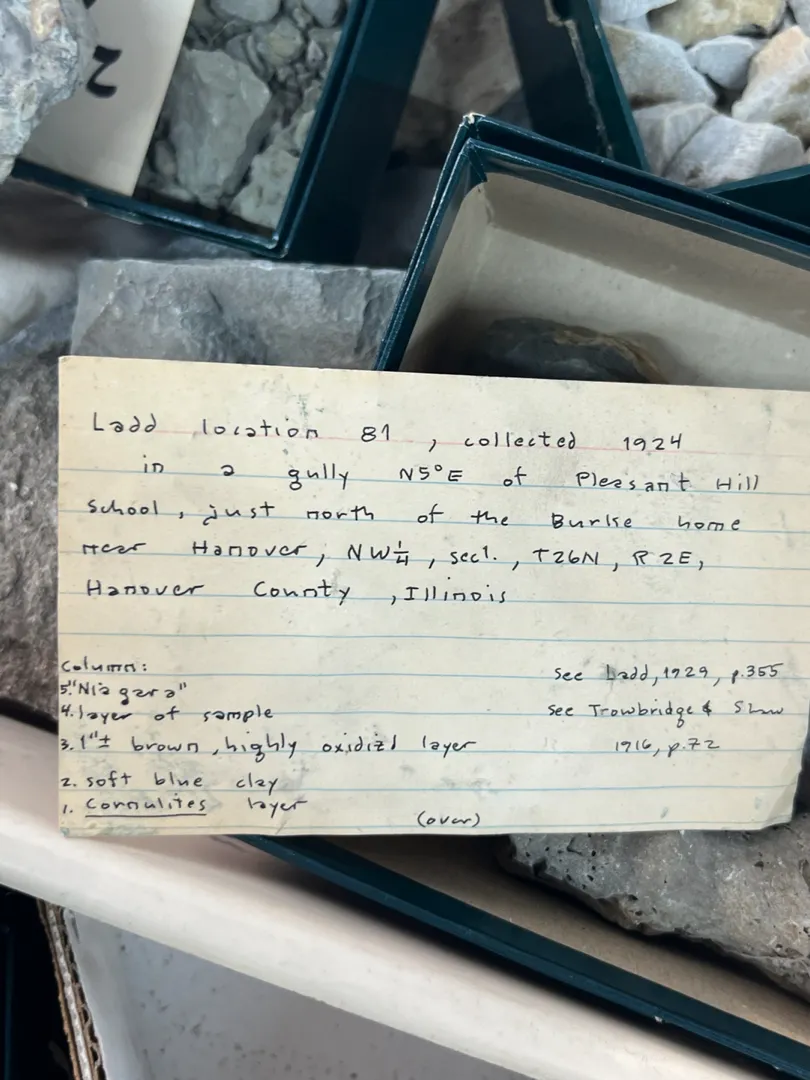 2
Ladd location 81, collected 1924
in a gully N5°E of Pleasant Hill
School, just north of the Burke home
near Hanover, NW¼, sec1., T26N, R2E,
Hanover County, Illinois
Column:
5."Niagara"
4. layer of sample
3. 1"± brown, highly oxidizd layer
2. soft blue clay
1. Cornulites layer
see Ladd, 1929, p.355
see Trowbridge & Shaw
1916, p.72
(over)